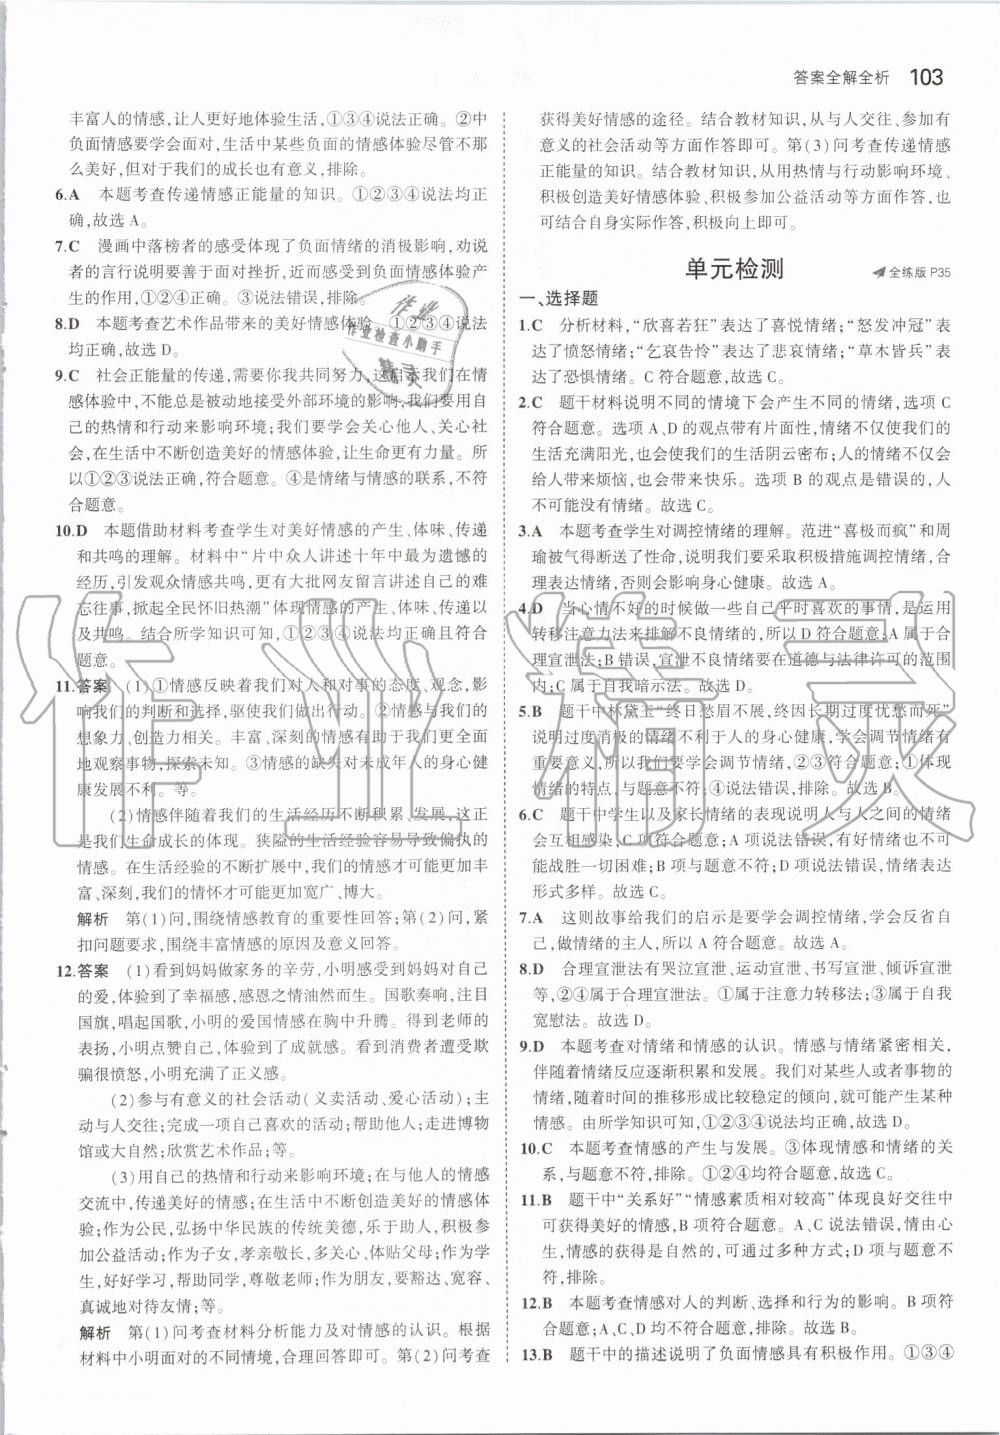 答案全解全析 103
丰富人的情感,让人更好地体验生活,①③④说法正确。②中
负面情感要学会面对,生活中某些负面的情感体验尽管不那
么美好,但对于我们的成长也有意义,排除。
6.A 本题考查传递情感正能量的知识。①②③④说法均正
确,故选 A。
7.C 漫画中落榜者的感受体现了负面情绪的消极影响,劝说
者的言行说明要善于面对挫折,进行自我调适,发挥正面情绪产
生的作用,①②④正确。③说法错误,排除。
8.D 本题考查艺术作品带来的美好情感体验。①②③④说法
均正确,故选 D。
9.C 社会正能量的传递,需要你我共同努力,这启示我们在情
感体验中,不能总是被动地接受外部环境的影响,我们要用自
己的热情和行动来影响环境;我们要学会关心他人、关心社
会,在生活中不断创造美好的情感体验,让生命更有力量。所
以①②③说法正确,符合题意。④是情绪与情感的联系,不符
合题意。
10.D 本题借助材料考查学生对美好情感的产生、体味、传递
和共鸣的理解。材料中“片中众人讲述十年中最为遗憾的
经历,引发观众情感共鸣,更有大批网友留言讲述自己的难
忘往事,掀起全民怀旧热潮”体现情感的产生、体味、传递以
及共鸣。结合所学知识可知,①②③④说法均正确且符合
题意。
11.答案 (1)①情感反映着我们对人和对事的态度、观念,影
响我们的判断和选择,驱使我们做出行动。②情感与我们的
想象力、创造力相关。丰富、深刻的情感有助于我们更全面
地观察事物,探索未知。③情感的缺失对未成年人的身心健
康发展不利。等。
(2)情感伴随着我们的生活经历不断积累、发展,这正
是我们生命成长的体现。狭隘的生活经验容易导致偏执的
情感。在生活经验的不断扩展中,我们的情感才可能更加丰
富、深刻,我们的情怀才可能更加宽广、博大。
解析 第(1)问,围绕情感教育的重要性回答;第(2)问,紧
扣问题要求,围绕丰富情感的原因及意义回答。
12.答案 (1)看到妈妈做家务的辛劳,小明感受到妈妈对自己
的爱,体验到了幸福感,感恩之情油然而生。国歌奏响,注目
国旗,唱起国歌,小明的爱国情感在胸中升腾。得到老师的
表扬,小明点赞自己,体验到了成就感。看到消费者遭受欺
骗很愤怒,小明充满了正义感。
(2)参与有意义的社会活动(义卖活动、爱心活动);主
动与人交往;完成一项自己喜欢的活动;帮助他人;走进博物
馆或大自然;欣赏艺术作品;等。
(3)用自己的热情和行动来影响环境;在与他人的情感
交流中,传递美好的情感;在生活中不断创造美好的情感体
验;作为公民,弘扬中华民族的传统美德,乐于助人,积极参
加公益活动;作为子女,孝亲敬长,多沟通,体贴父母;作为学
生,好好学习,帮助同学,尊敬老师;作为朋友,要豁达、宽容、
真诚地对待友情;等。
解析 第(1)问考查材料分析能力及对情感的认识。根据
材料中小明面对的不同情境,合理回答即可。第(2)问考查
获得美好情感的途径。结合教材知识,从与人交往、参与有
意义的社会活动等方面作答即可。第(3)问考查传递情感
正能量的知识。结合教材知识,从用热情与行动影响环境、
积极创造美好情感体验、积极参加公益活动等方面作答,也
可结合自身实际作答,积极向上即可。
单元检测 全练版 P35
一、选择题
1.C 分析材料,“欣喜若狂”表达了喜悦情绪;“怒发冲冠”表
达了愤怒情绪;“乞哀告怜”表达了悲哀情绪;“草木皆兵”表
达了恐惧情绪。C 符合题意,故选 C。
2.C 题干材料说明不同的情境下会产生不同的情绪,选项 C
符合题意。选项 A、D 的观点带有片面性,情绪不仅仅让我们的
生活充满阳光,也会使我们的生活阴云密布;人的情绪不仅会
给人带来烦恼,也会带来快乐。选项 B 的观点是错误的,
人不可能没有情绪。故选 C。
3.A 本题考查学生对调控情绪的理解。范进“喜极而疯”和周
瑜被气得断送了性命,说明我们要采取积极措施调控情绪,合
理表达情绪,否则会影响身心健康。故选 A。
4.D 当心情不好的时候做一些自己平时喜欢的事情,是运用
转移注意力法来排解不良情绪的,所以 D 符合题意;A 属于合
理宣泄法;B 错误,宣泄不良情绪要在道德与法律许可的范围
内;C 属于自我暗示法。故选 D。
5.B 题干中林黛玉“终日愁眉不展,终因长期过度忧愁而死”
说明过度消极的情绪不利于人的身心健康,学会调节情绪有
重要意义,所以我们要学会调节情绪,②③符合题意;①体现
情绪的特点,与题意无关;④说法错误,排除。故选 B。
6.C 题干中学生以及家长情绪的表现说明人与人之间的情绪
会互相感染,C 项符合题意;A 项说法错误,有好情绪不可
能战胜一切困难;B 项与题意不符;D 项说法错误,情绪表达
形式多样。故选 C。
7.A 这则故事给我们的启示是要学会调控情绪,学会反省自
己,做情绪的主人,所以 A 符合题意。故选 A。
8.D 合理宣泄法有哭泣宣泄、运动宣泄、书写宣泄、倾诉宣泄
等,②④属于合理宣泄法。①属于注意力转移法;③属于自我
宽慰法。故选 D。
9.D 本题考查对情绪和情感的认识。情感与情绪紧密相关,
伴随着情绪反应逐渐积累和发展。我们对某些人或者事物的
情绪,随着时间的推移形成比较稳定的倾向,就可能产生某种
情感。结合所学知识可知,①②③④说法均正确,故选 D。
10.C 本题考查情感的产生与发展。③体现情感和情绪的关
系,与题意不符,排除。①②④均符合题意,故选 C。
11.B 题干中“关系好”“情感素质相对较高”体现良好交往中
可获得美好的情感,B 项符合题意。A、C 说法错误,情由心
生,情感的获得是自然的,可通过多种方式;D 项与题意不
符,排除。
12.B 本题考查情感对人的判断、选择和行为的影响。B 项符
合题意;A、C、D 无从体现,不符合题意,排除。故选 B。
13.B 题干中的描述说明了负面情感具有积极作用。①③④
作业
作业检查小助手
精灵
作业精灵